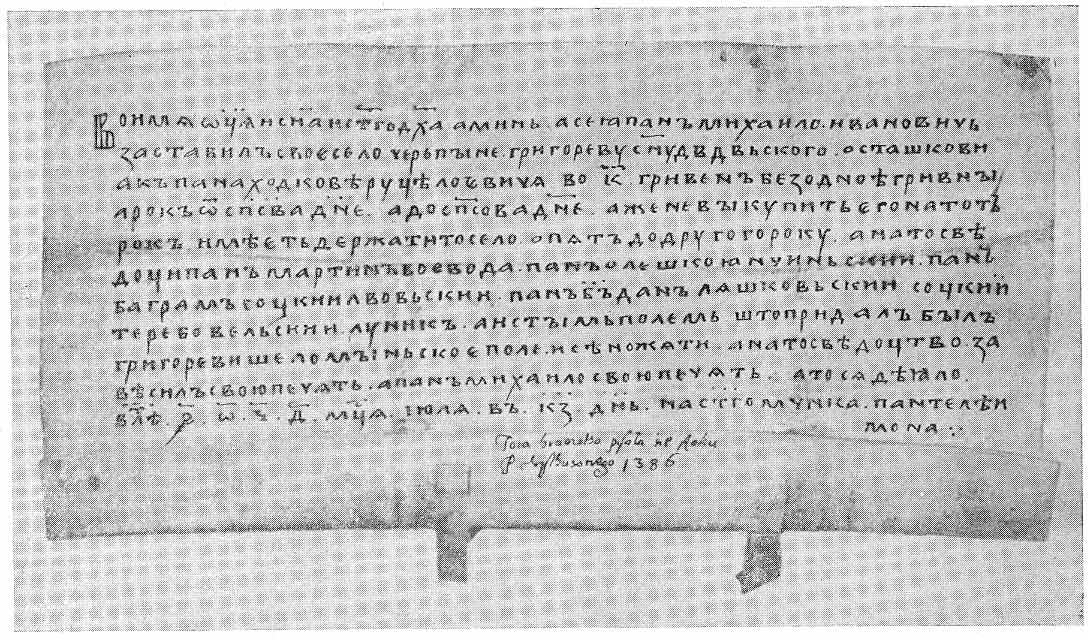 Во имѧ ѡц҃а и сн҃а и ст҃го дх҃а аминь. а се ꙗ панъ михаило. ивановичь
заставилъ своє село черьпъıнє. григореву сну давыдвьского. осташкови
акъ пана ходковѣ руцѣ лоєвича во к҃ гривенъ без одноѣ гривнъı
а рокъ ѿ сп҃сва дн҃е. а до сп҃сова дн҃е. аже не въıкупить єго на тотъ
рокъ имѣєть держати то село опѧть до другого року. а на то свѣ
доци панъ мартинъ воєвода. панъ олешко юичиньскии. панъ
баграмъ соцкии лвовьскии. панъ бъ҃данъ лѧшковьскии соцкии
теребовельскии лучикъ. а и с тъımь полемь што придалъ бъıлъ
григореви шеломъıньскоє полє. и сѣножѧти. а на то свѣдоцтво. за
вѣсилъ свою печать. а панъ михаило свою печѧть. а то сѧ дѣꙗло.
в лѣ҃. ҂ѕ҃. ѡ҃. ч҃. д҃. мц҃а. июлѧ. въ. к҃з. дн҃ь. на ст҃го мчнка. пантелѣи
мона ⁘
1386